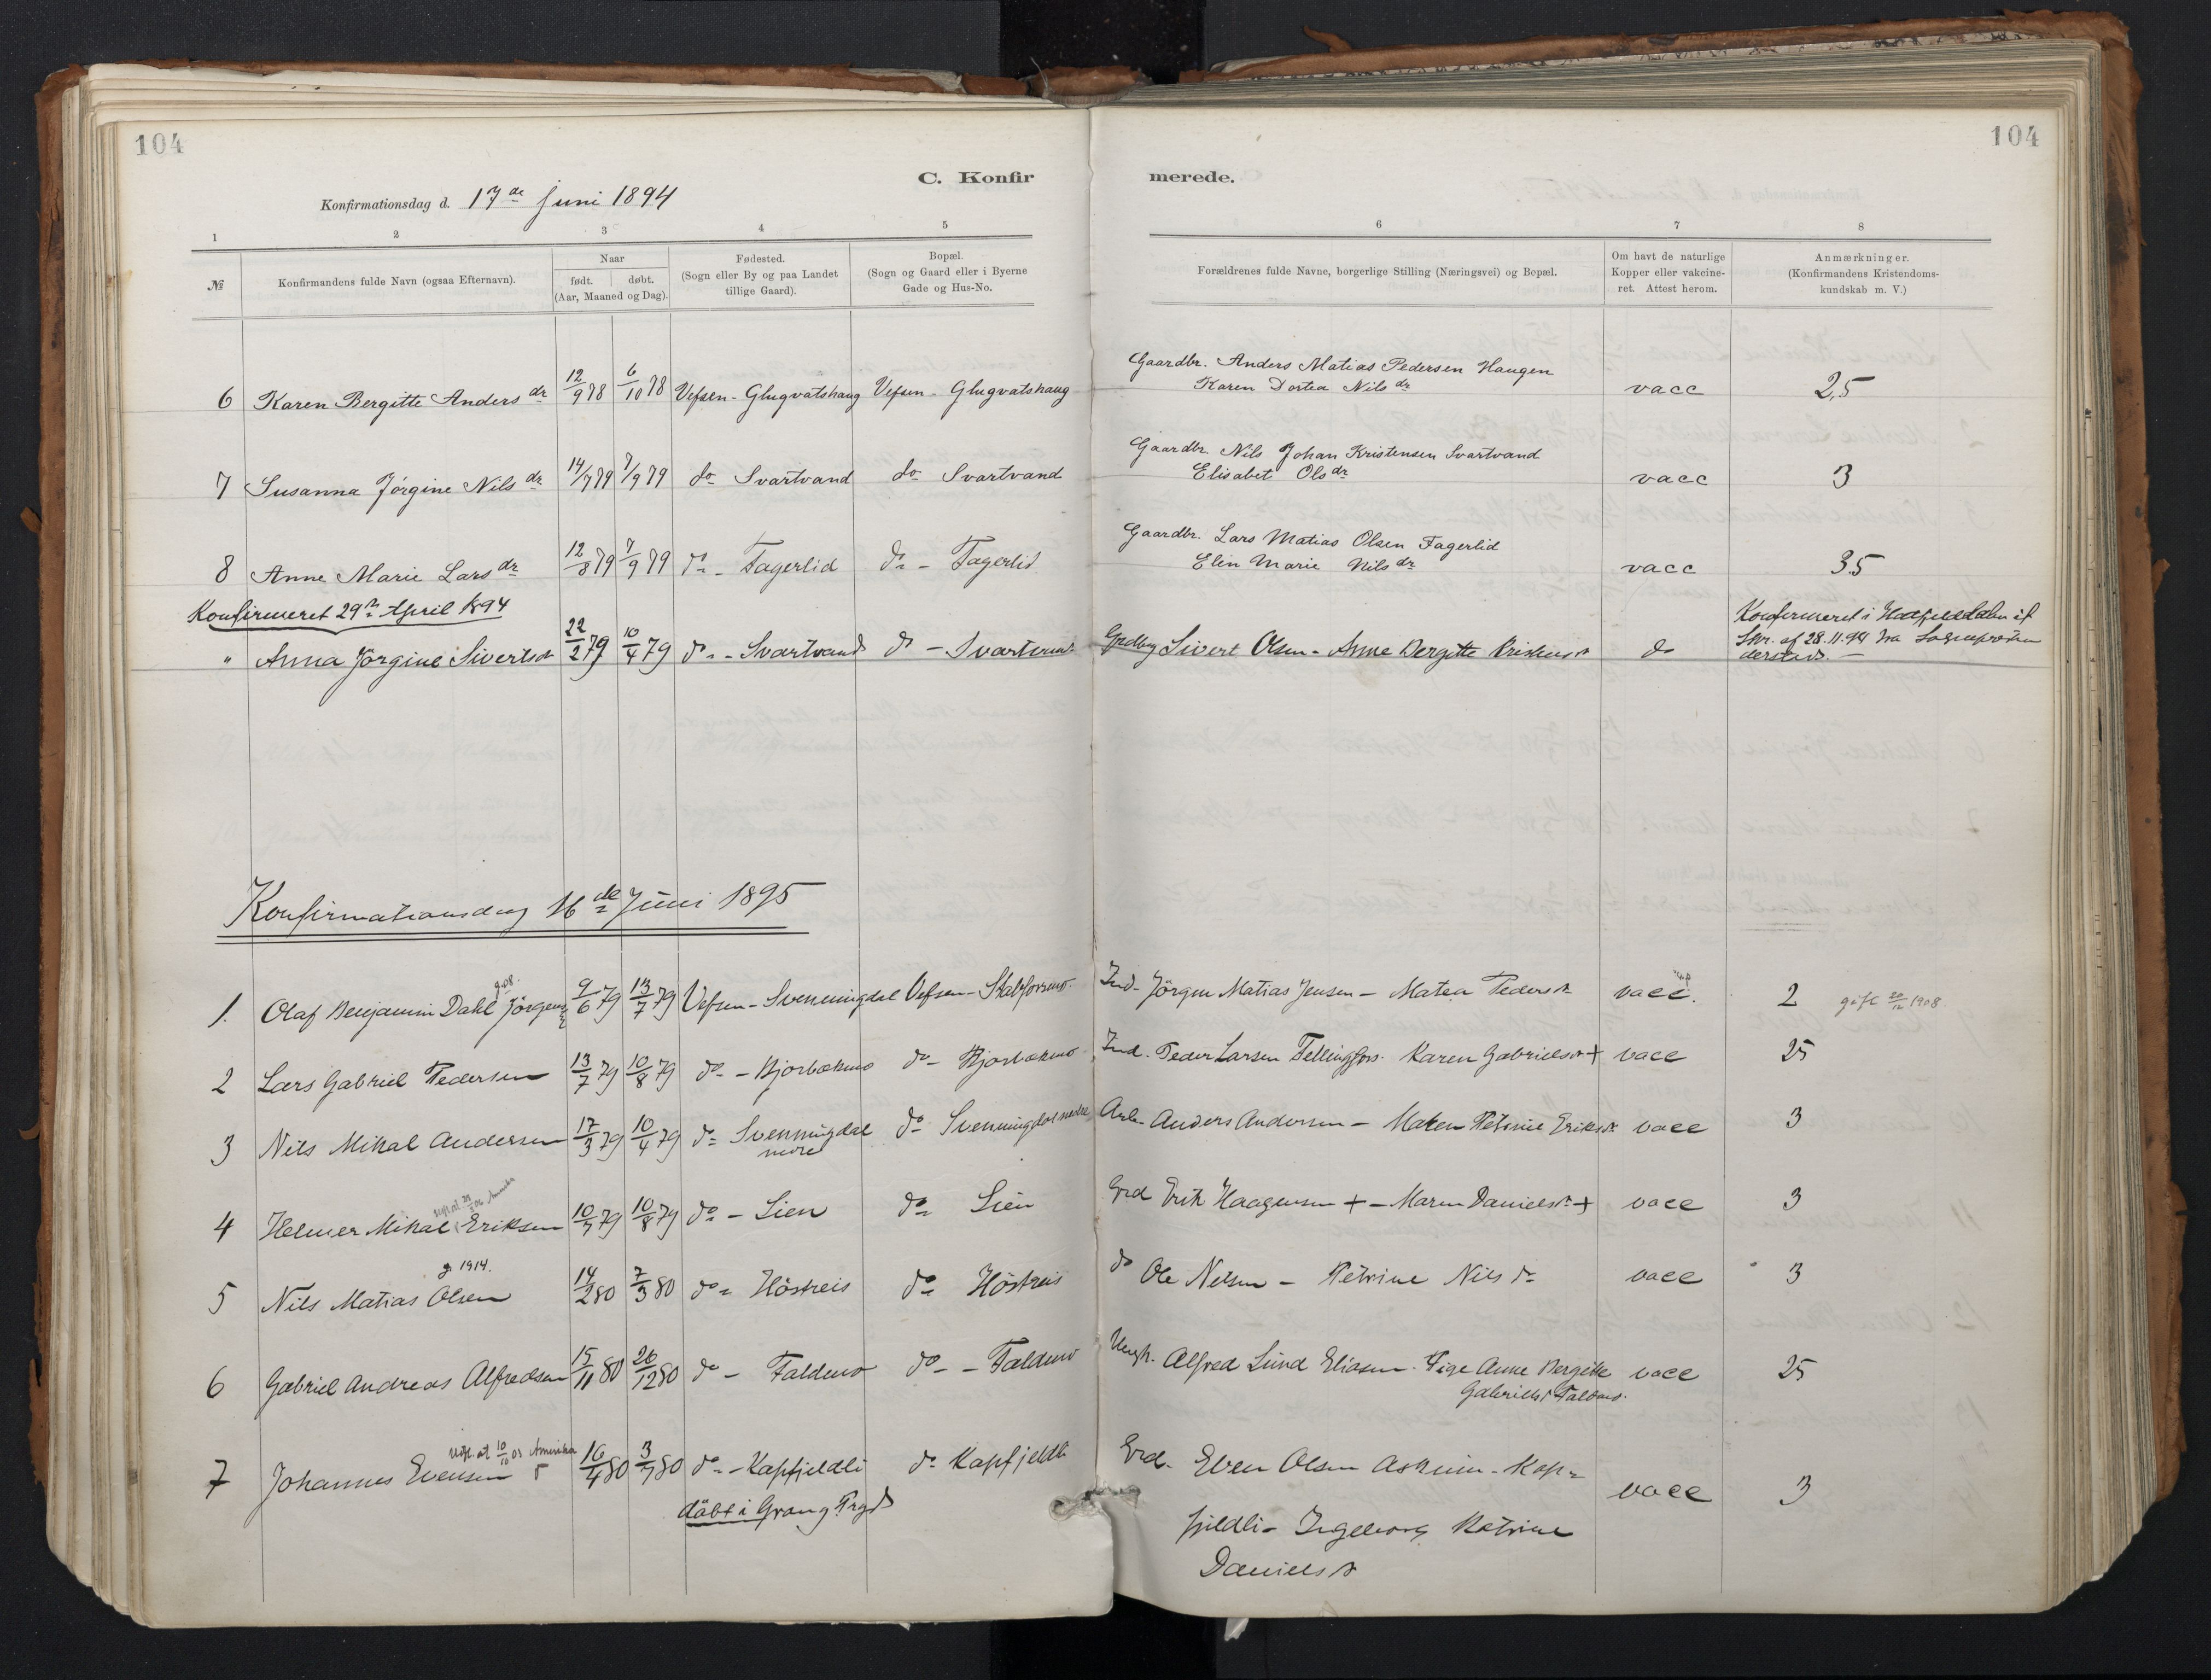 104
104
C. Konfirmerede.
Konfirmationsdag d. 17de Juni 1894
1 2 3 4 5 6 7 8
№ Konfirmandens fulde Navn (ogsaa Efternavn). Naar født. døbt. (Aar, Maaned og Dag). Fødested. (Sogn eller By og paa Landet tillige Gaard). Bopæl. (Sogn og Gaard eller i Byerne Gade og Hus-No. Forældrenes fulde Navne, borgerlige Stilling (Næringsvei) og Bopæl. Om havt de naturlige Kopper eller vakcineret. Attest herom. Anmærkninger. (Konfirmandens Kristendomskundskab m. V.)
6 Karen Bergitte Andersdr 12/9 78 6/10 78 Vefsen - Glugvatshaug Vefsen - Glugvatshaug Gaardbr. Anders Matias Pedersen Haugen vacc 2,5
Karen Dortea Nilsdr
7 Susanna Jørgine Nilsdr 14/7 79 7/9 79 do Svartvand do Svartvand Gaardbr. Nils Johan Kristensen Svartvand vacc 3
Elisabet Olsdr
8 Anne Marie Larsdr 12/8 79 7/9 79 do - Fagerlid do - Fagerlid Gaardbr. Lars Matias Olsen Fagerlid vacc 3.5
Elin Marie Nilsdr
Konfirmeret 29de April 1894
" Anna Jørgine Sivertsdr 22/2 79 10/4 79 do - Svartvand do - Svartvand Sivert Olsen - Anne Bergitte do Konfirmeret i Hatfjelddalen
af 28.11.94 fra
Konfirmationsdag 16de Juni 1895
1. Olaf Benjamin Dahl Jörgens 9/6 79 13/7 79 Vefsen - Svenningdal Vefsen - Ind. Jörgen Matias Jensen - Matea Pedersdr vacc. 2 gift 20/12 1908.
2 Lars Gabriel Pedersen 13/7 79 10/8 79 do - Bjorbækmo do - Bjorbækmo Ind. Peder Larsen Karen Gabrielsdr + vacc 25
3 Nils Mikal Andersen 17/3 79 10/4 79 do Svenningdal nedre do Svenningdal nedre Arb. Anders Andersen - Maren Petrine Eriksdr vacc 3
4 Helmer Mikal Eriksen 10/7 79 10/8 79 do - Lien do Lien Grd Erik Haagensen + - Maren Danielsdr + vacc 3
g. 1914.
5 Nils Matias Olsen 14/2 80 7/3 80 do Höstreis do Höstreis do Ole Nelsen - Petrine Nilsdr vacc 3
6 Gabriel Andreas Alfredsen 15/11 80 26/12 80 do - Faldmo do - Faldmo Ungk. Alfred Lund Eliasen. Pige Anne Bergitte vacc 25
Gabrielsdr Faldmo.
utfl. at 10/10 03 Amerika
7 Johannes Evensen 16/4 80 3/7 80 do - Kapfjeldli do Kapfjeldli Grd. Even Olsen Askeim - Kap= vacc 3
döbt i Grong Prgd
fjeldli - Ingeborg Katrine
Danielsdr